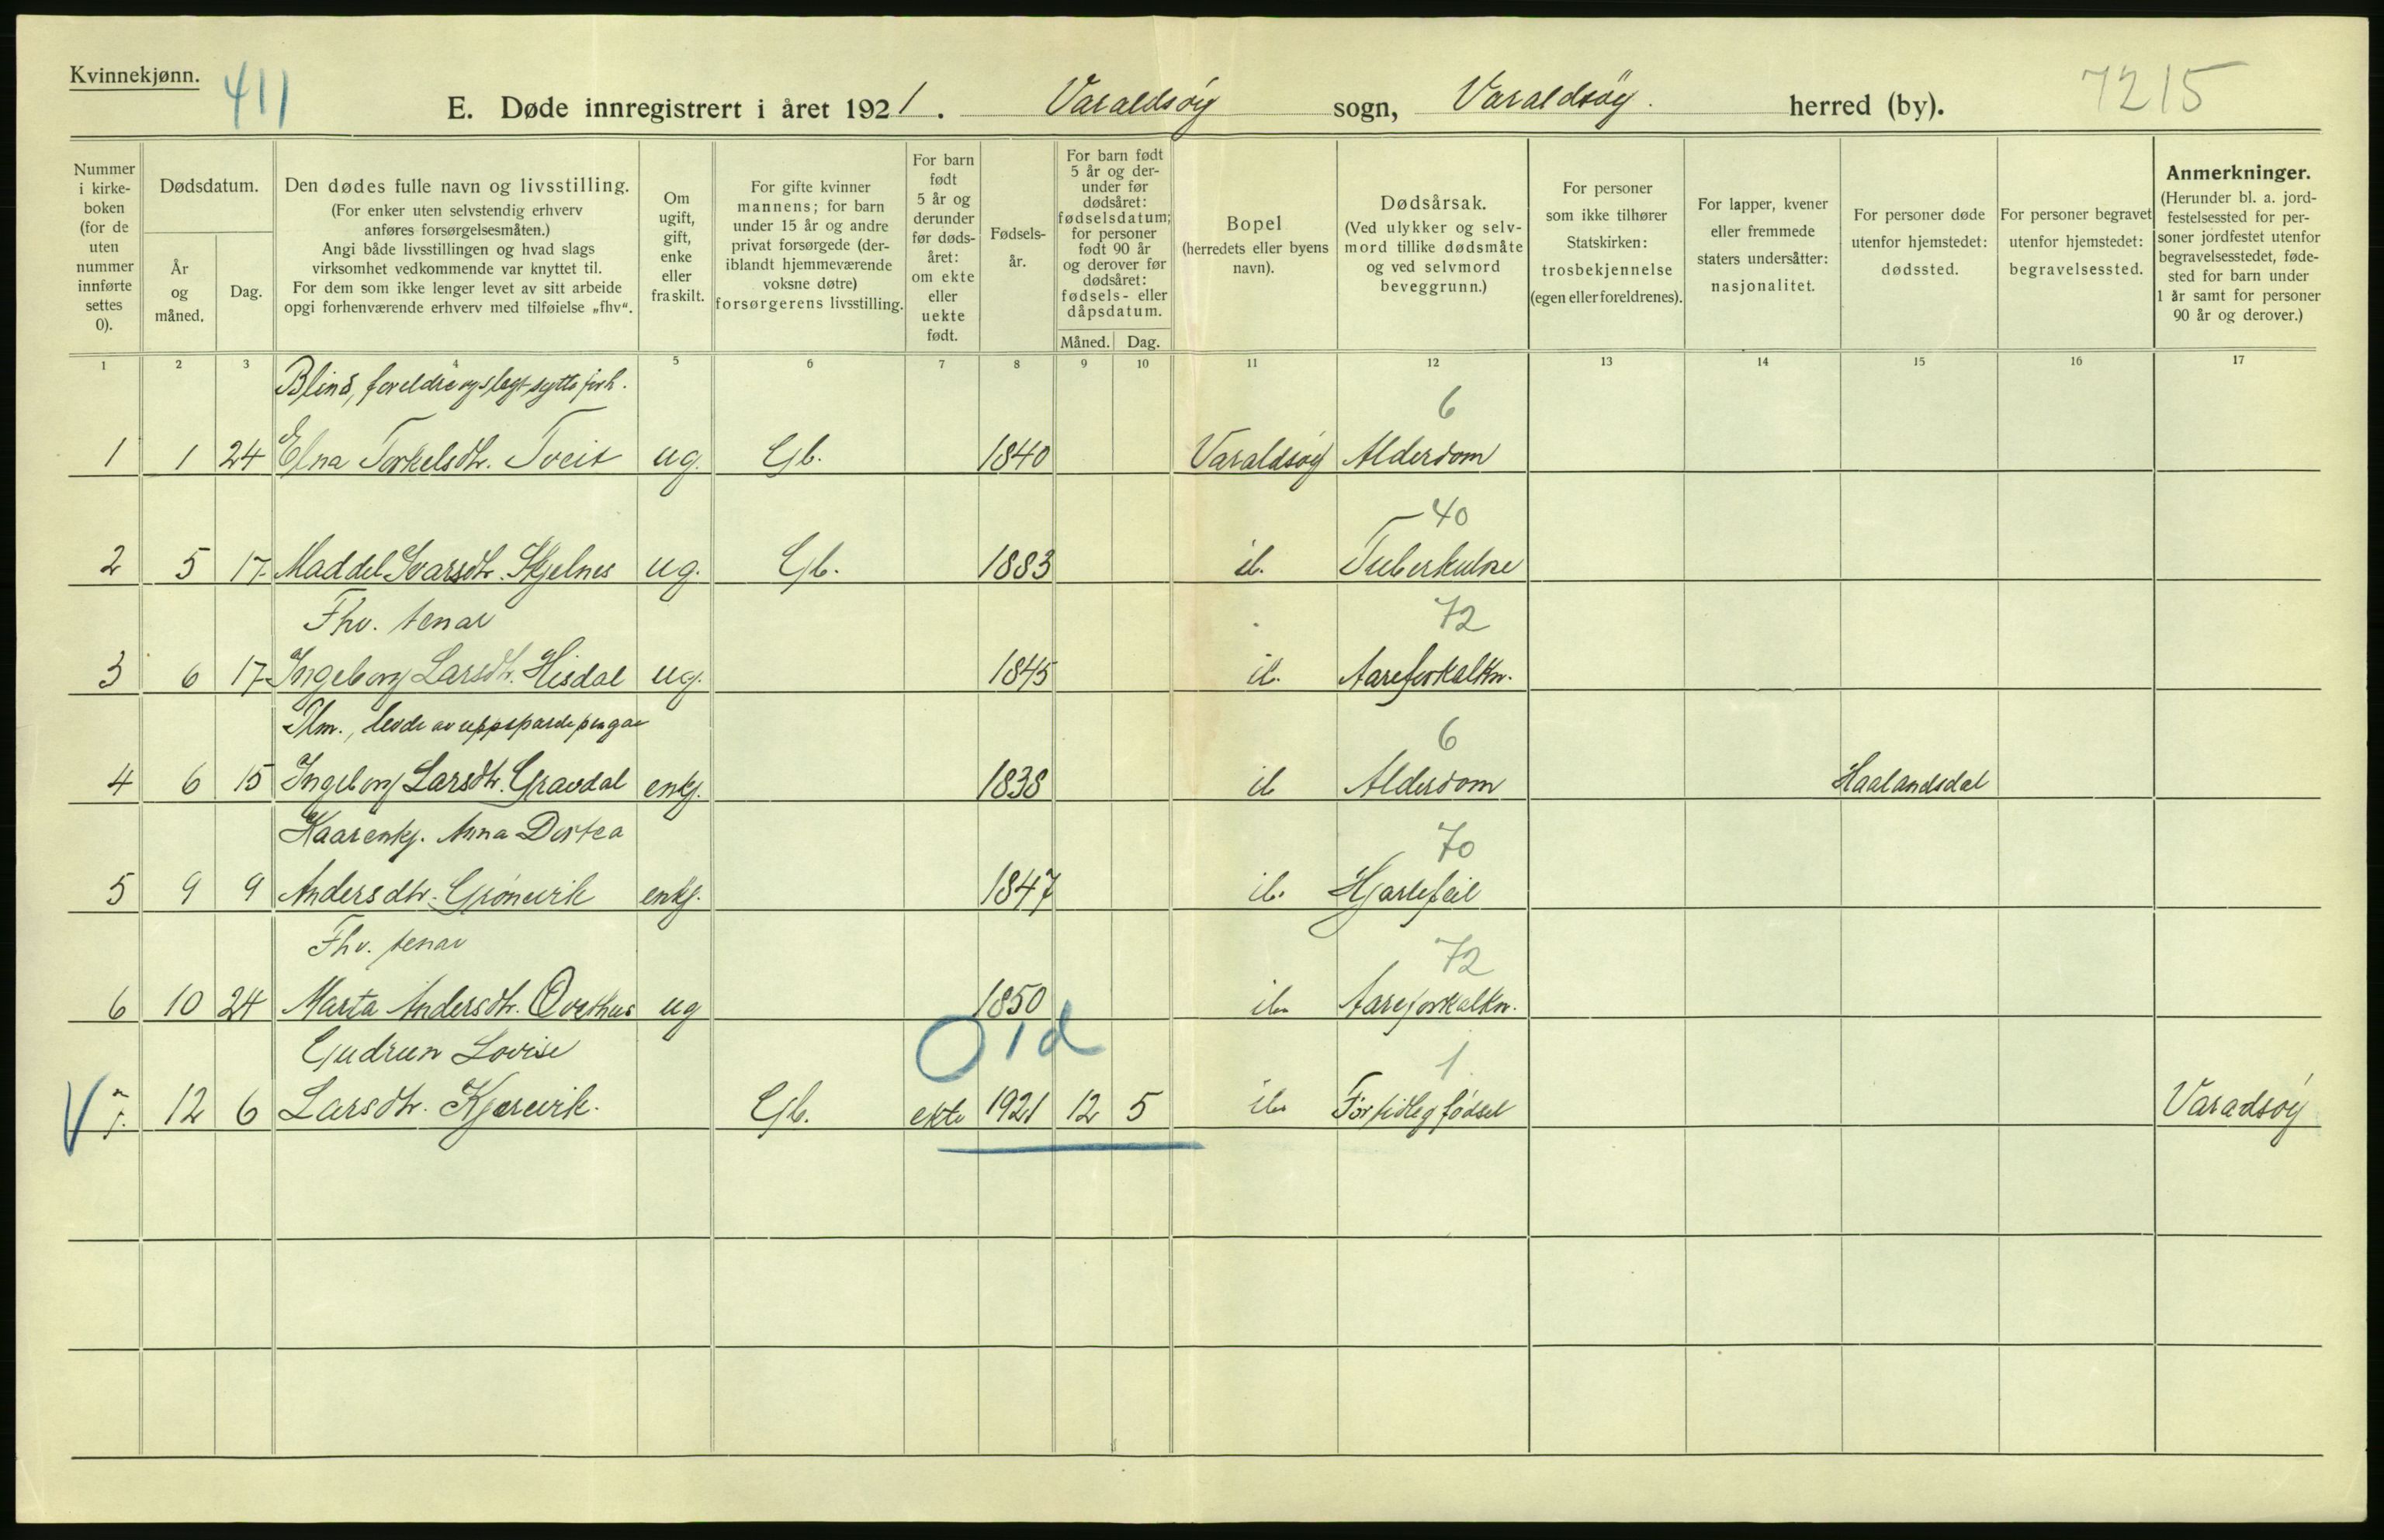 Kvinnekjønn.
411
E. Døde innregistrert i året 1921. Varaldsøy sogn, Varaldsøy. herred (by).
7215
Nummer i kirke- boken (for de uten nummer innførte settes 0).
Dødsdatum.
År og måned.
Dag.
Den dødes fulle navn og livsstilling.
(For enker uten selvstendig erhverv anføres forsørgelsesmåten.)
Angi både livsstillingen og hvad slags virksomhet vedkommende var knyttet til.
For dem som ikke lenger levet av sitt arbeide opgi forhenværende erhverv med tilføielse „fhv“.
Om ugift, gift, enke eller fraskilt.
For gifte kvinner mannens; for barn under 15 år og andre privat forsørgede (der- iblandt hjemmeværende voksne døtre) forsørgerens livsstilling.
For barn født 5 år og derunder før døds- året: om ekte eller uekte født.
Fødsels- år.
For barn født 5 år og der- under før dødsåret: fødselsdatum; for personer født 90 år og derover før dødsåret: fødsels- eller dåpsdatum.
Måned. Dag.
Bopel
(herredets eller byens navn).
Dødsårsak.
(Ved ulykker og selv- mord tillike dødsmåte og ved selvmord beveggrunn.)
For personer som ikke tilhører Statskirken: trosbekjennelse (egen eller foreldrenes).
For lapper, kvener eller fremmede staters undersåtter: nasjonalitet.
For personer døde utenfor hjemstedet: dødssted.
For personer begravet utenfor hjemstedet: begravelsessted.
Anmerkninger.
(Herunder bl. a. jord- festelsessted for per- soner jordfestet utenfor begravelsesstedet, føde- sted for barn under 1 år samt for personer 90 år og derover.)
1 2 3 4 5 6 7 8 9 10 11 12 13 14 15 16 17
Blind, foreldre og slegt
6
1 1 24 Elna Torkelsdtr. Tveit ug. Gb. 1840 Varaldsøy Alderdom
40
2 5 17 Maddel Ivarsdtr. Skjelnes ug. Gb. 1883 il. Tuberkulose
Fhv. tenar 72
3 6 17 Ingeborg Larsdtr. Hisdal ug. 1845 il. Aareforkalkn.
levde av uppsparde pengar 6
4 6 15 Ingeborg Larsdtr. Gravdal enkj. 1838 il Alderdom Haalandsdal
Kaarenkj. Anna Dortea 70
5 9 9 Andersdtr. Grønevik enkj. 1847 il. Hjartefeil
Fhv. tenar 72
6 10 24 Marta Andersdtr. Ovethus ug 1850 il. Aareforkalkn.
Gudrun Lovise 0 1 d 1
V 7. 12 6 Larsdtr. Kjærevik. Gb. ekte 1921 12 5 il. For tidleg fødsel Varadsøy